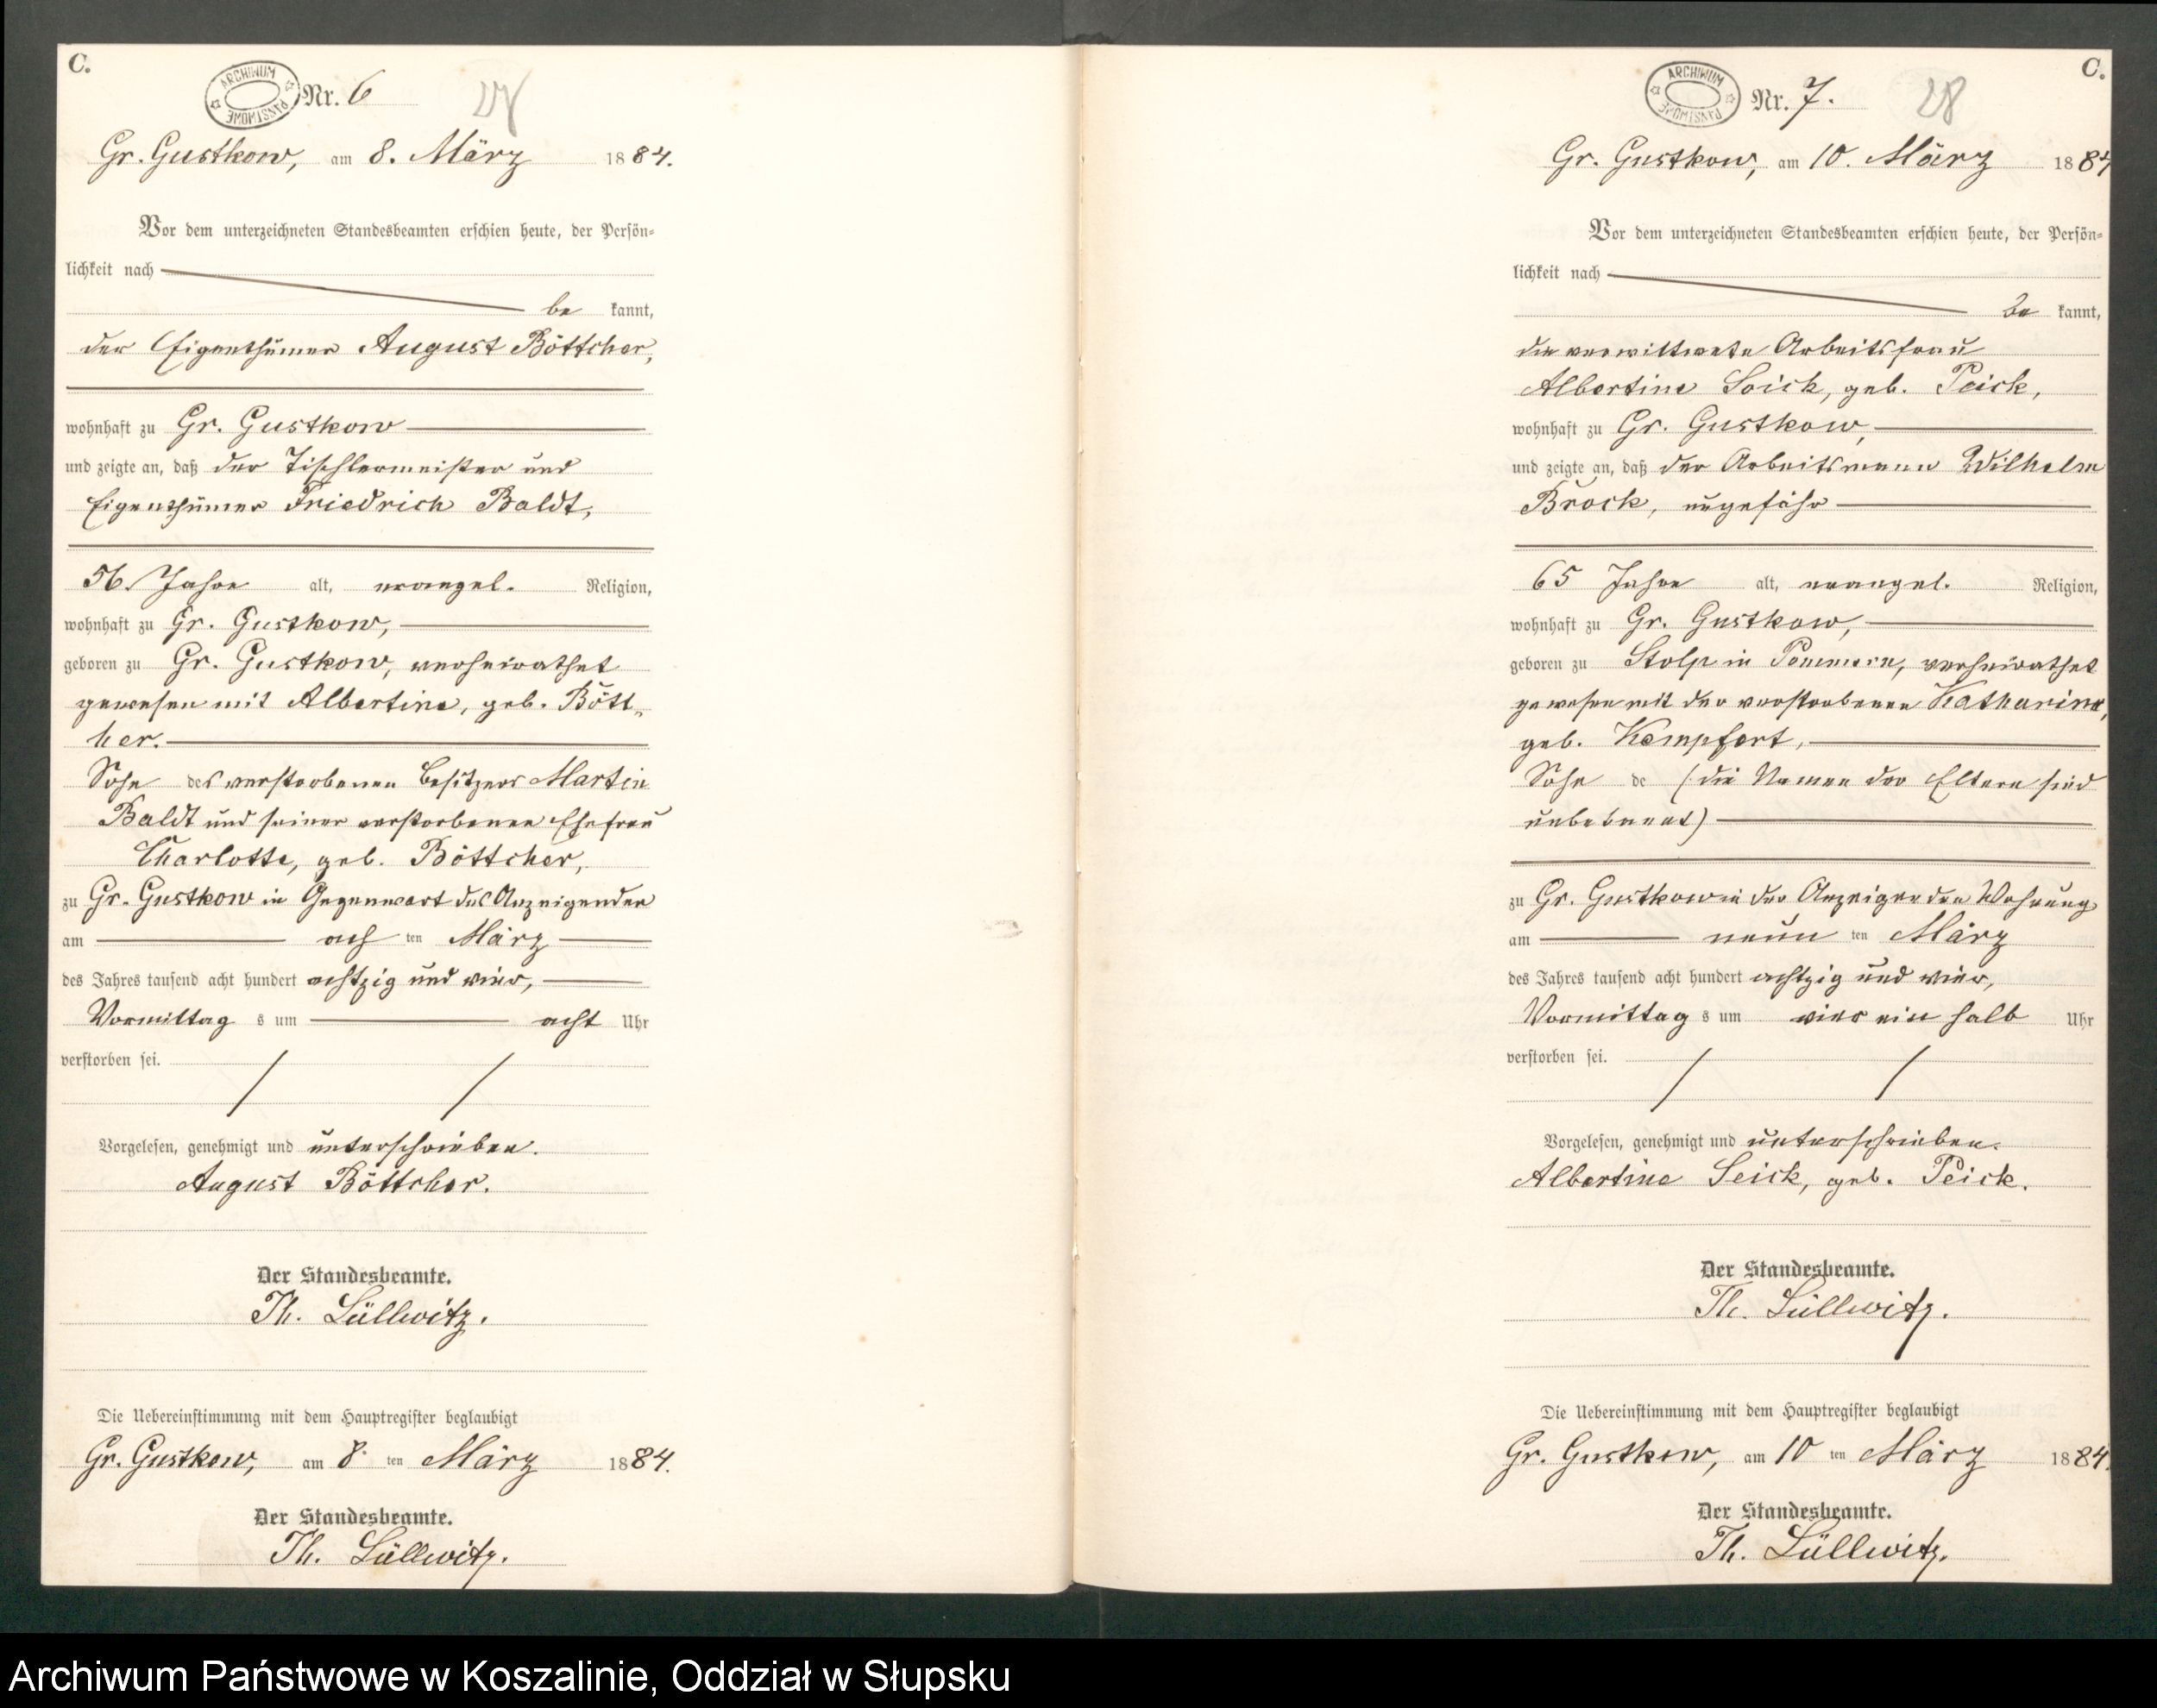 C.
ARCHIWUM PAŃSTWOWE
Nr. 6
27
Gr. Gustkow, am 8. März 1884.
Vor dem unterzeichneten Standesbeamten erschien heute, der Persön-
lichkeit nach
be kannt,
der Eigenthümer August Böttcher,
wohnhaft zu Gr. Gustkow
und zeigte an, daß der Tischlermeister und
Eigenthümer Friedrich Baldt,
56 Jahre alt, evangel. Religion,
wohnhaft zu Gr. Gustkow,
geboren zu Gr. Gustkow, verheirathet
gewesen mit Albertine, geb. Bött-
her.
Sohn des verstorbenen Besitzers Martin
Baldt und seiner verstorbenen Ehefrau
Charlotte, geb. Böttcher,
zu Gr. Gustkow in Gegenwart des Anzeigenden
am ach ten März
des Jahres tausend acht hundert achtzig und vier,
Vormittag s um acht Uhr
verstorben sei.
Vorgelesen, genehmigt und unterschrieben.
August Böttcher.
Der Standesbeamte.
Th. Lüllwitz.
Die Uebereinstimmung mit dem Hauptregister beglaubigt
Gr. Gustkow, am 8. ten März 1884.
Der Standesbeamte.
Th. Lüllwitz.
C.
ARCHIWUM PAŃSTWOWE
Nr. 7.
28
Gr. Gustkow, am 10. März 1884
Vor dem unterzeichneten Standesbeamten erschien heute, der Persön-
lichkeit nach
be kannt,
die verwittwete Arbeitsfrau
Albertine Seick, geb. Peick,
wohnhaft zu Gr. Gustkow,
und zeigte an, daß der Arbeitsmann Wilhelm
Brock, ungefähr
65 Jahre alt, evangel. Religion,
wohnhaft zu Gr. Gustkow,
geboren zu Stolp in Pommern, verheirathet
gewesen mit der verstorbenen Katharine,
geb. Kempfert,
Sohn de (die Namen der Eltern sind
unbekannt)
zu Gr. Gustkow in der Anzeigenden Wohnung
am neun ten März
des Jahres tausend acht hundert achtzig und vier,
Vormittag s um vier ein halb Uhr
verstorben sei.
Vorgelesen, genehmigt und unterschrieben.
Albertine Seick, geb. Peick.
Der Standesbeamte.
Th. Lüllwitz.
Die Uebereinstimmung mit dem Hauptregister beglaubigt
Gr. Gustkow, am 10 ten März 1884.
Der Standesbeamte.
Th. Lüllwitz.
Archiwum Państwowe w Koszalinie, Oddział w Słupsku